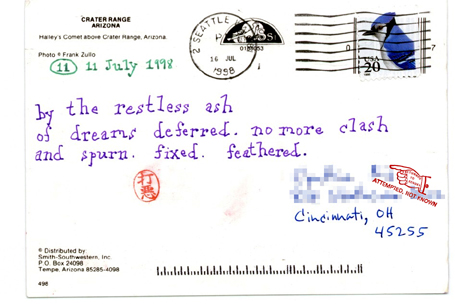 CRATER RANGE
ARIZONA
Halley's Comet above Crater Range, Arizona.
Photo © Frank Zullo
11 11 July 1998
SEATTLE
16 JUL
1998
USA
20
by the restless ash
of dreams deferred. no more clash
and spurn. fixed. feathered.
ATTEMPTED, NOT KNOWN
Cincinnati, OH
45255
© Distributed by
Smith-Southwestern, Inc.
P.O. Box 24098
Tempe, Arizona 85285-4098
498